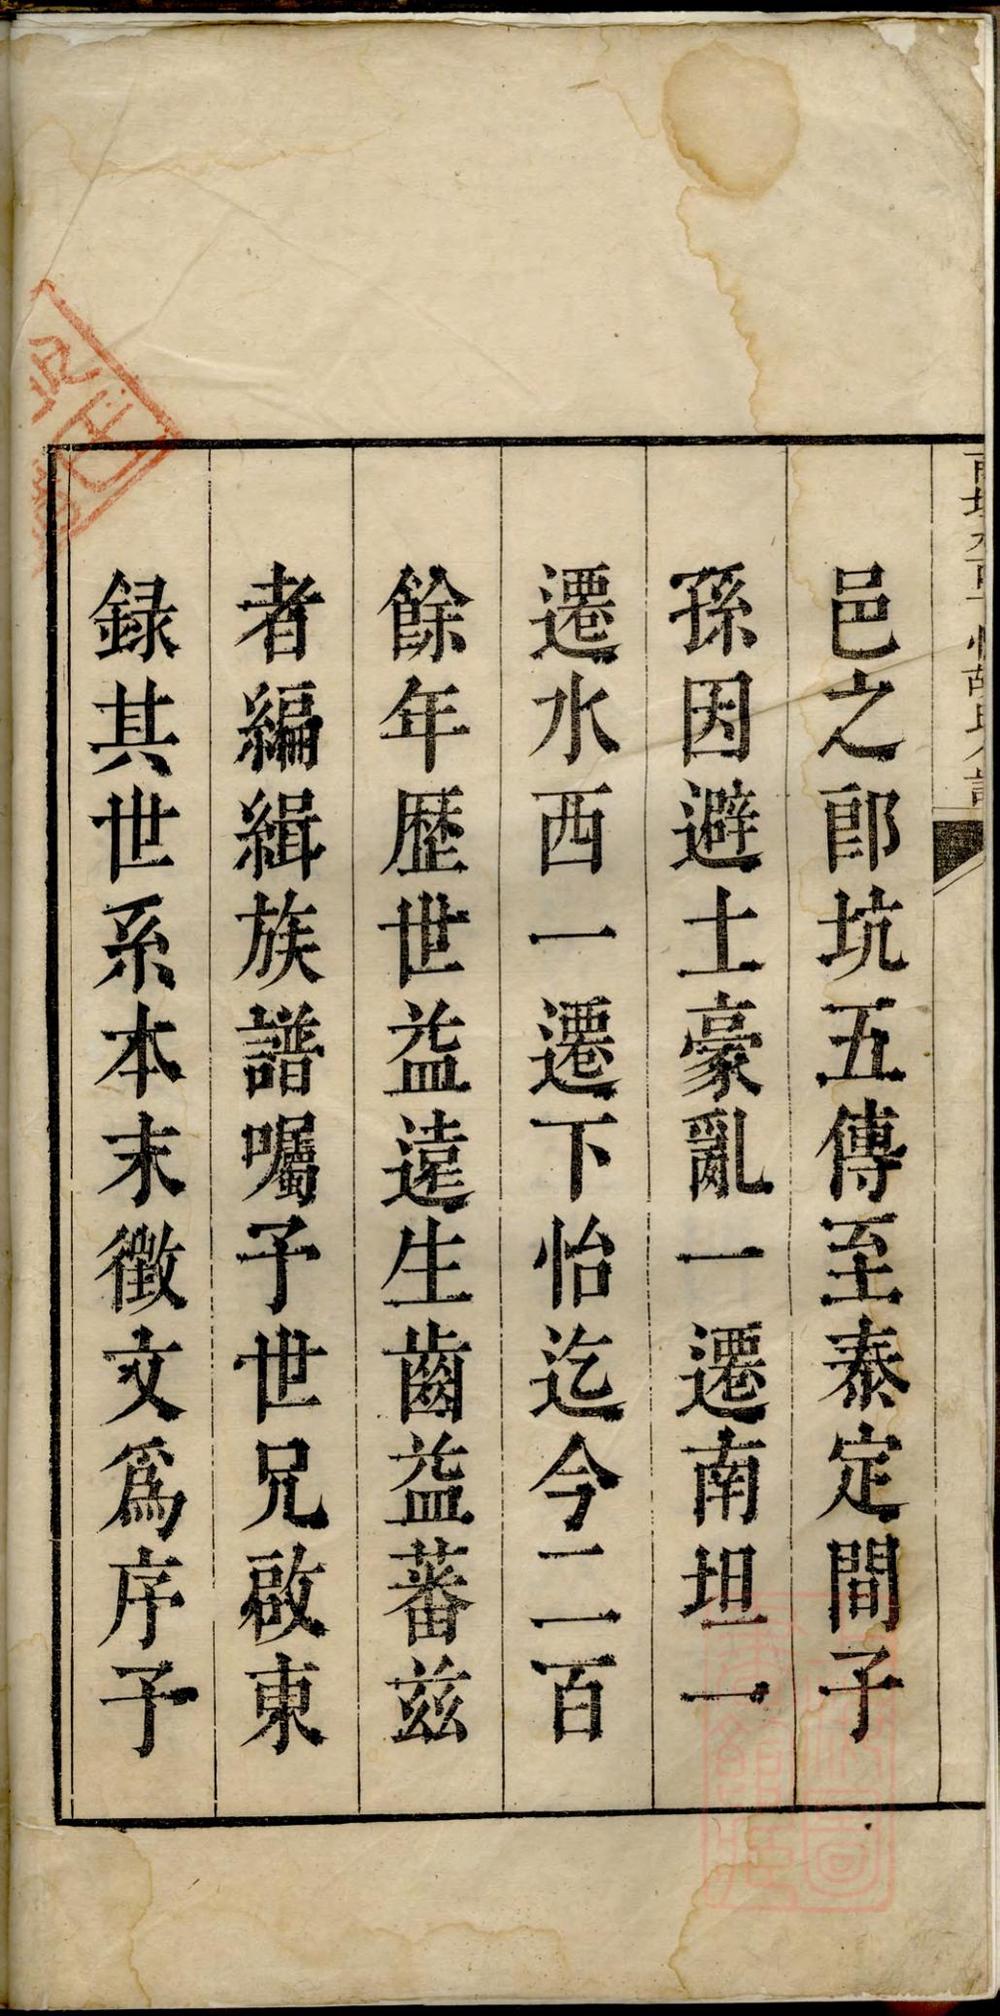 邑之郎坑五傳至泰定間子
孫因避土豪亂一遷南坦一
遷水西一遷下怡迄今二百
餘年歴世益遠生齒益蕃兹
者編緝族譜囑予世兄啟東
録其世系本末徵文爲序予